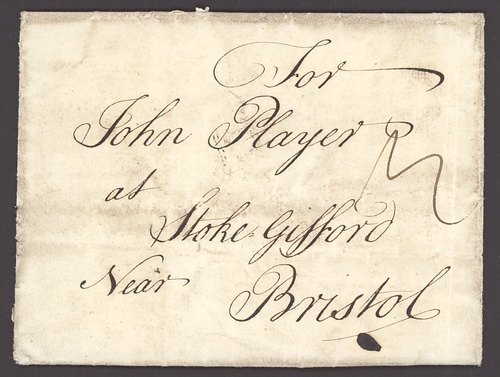 For
John Player
at
Stoke Gifford
Near
Bristol